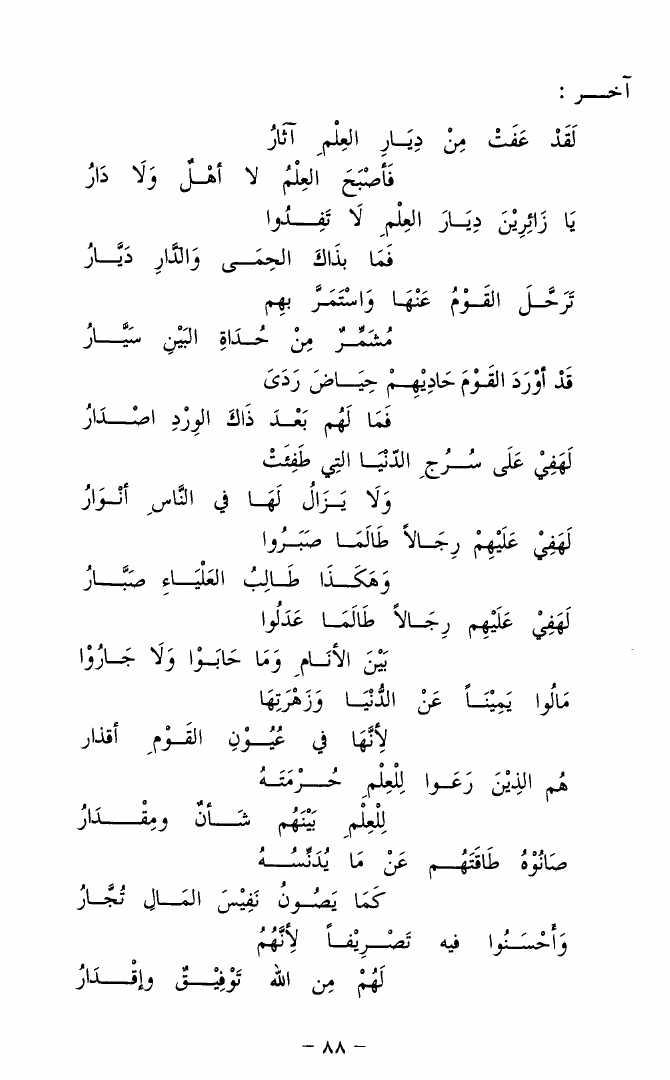 آخـر :
لَقَدْ عَفَتْ مِنْ دِيَـارِ العِلْمِ آثَارُ
فَأصْبَحَ العِلْمُ لا أهْـلٌ وَلَا دَارُ
يَا زَائِرِيْنَ دِيَـارَ العِلْمِ لَا تَفِـدُوا
فَمَا بِذَاكَ الحِمَـى وَالدَّارِ دَيَّـارُ
تَرَحَّـلَ القَـوْمُ عَنْهَا وَاسْتَمَرَّ بِهِم
مُشَمِّـرٌ مِنْ حُـدَاةِ البَيْنِ سَيَّـارُ
قَدْ أوْرَدَ القَـوْمَ حَادِيْهِـمْ حِيَـاضَ رَدَىً
فَمَا لَهُم بَعْـدَ ذَاكَ الوِرْدِ اصْـدَارُ
لَهَفِيْ عَلَى سُـرُجِ الدّنْيَـا التِي طَفِئَتْ
وَلَا يَـزَالُ لَهَـا في النَّاسِ أنْـوَارُ
لَهَفِيْ عَلَيْهِمْ رِجَـالاً طَالَمَـا صَبَـرُوا
وَهَكَـذَا طَـالِبُ العَلْيَـاءِ صَبَّـارُ
لَهَفِيْ عَلَيْهِم رِجَـالاً طَالَمَـا عَدَلُوا
بَيْنَ الأنَـامِ وَمَا حَابَـوْا وَلَا جَـارُوْا
مَالُوا يَمِيْنَـاً عَنْ الدُّنْيَـا وَزَهْرَتِهَا
لِأنَّهَا في عُيُـوْنِ القَـوْمِ أقذار
هُم الذِيْنَ رَعَـوا لِلْعِلْمِ حُـرْمَتَـهُ
لِلْعِلْمِ بَيْنَهُم شَـأنٌ ومِقْـدَارُ
صَانُوْهُ طَاقَتَهُـم عَنْ مَا يُدَنِّسُـهُ
كَمَا يَصُـونُ نَفِيْسَ المَـالِ تُجَّـارُ
وَأَحْسَنُـوا فيه تَصْـرِيفـاً لِأنَّهُمُ
لَهُمْ مِن الله تَوْفِيْـقٌ وإقْـدَارُ
– ٨٨ –